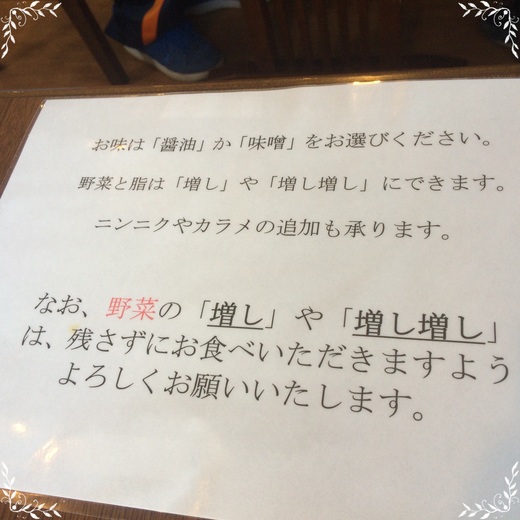 お味は「醤油」か「味噌」をお選びください。
野菜と脂は「増し」や「増し増し」にできます。
ニンニクやカラメの追加も承ります。
なお、野菜の「増し」や「増し増し」
は、残さずにお食べいただきますよう
よろしくお願いいたします。